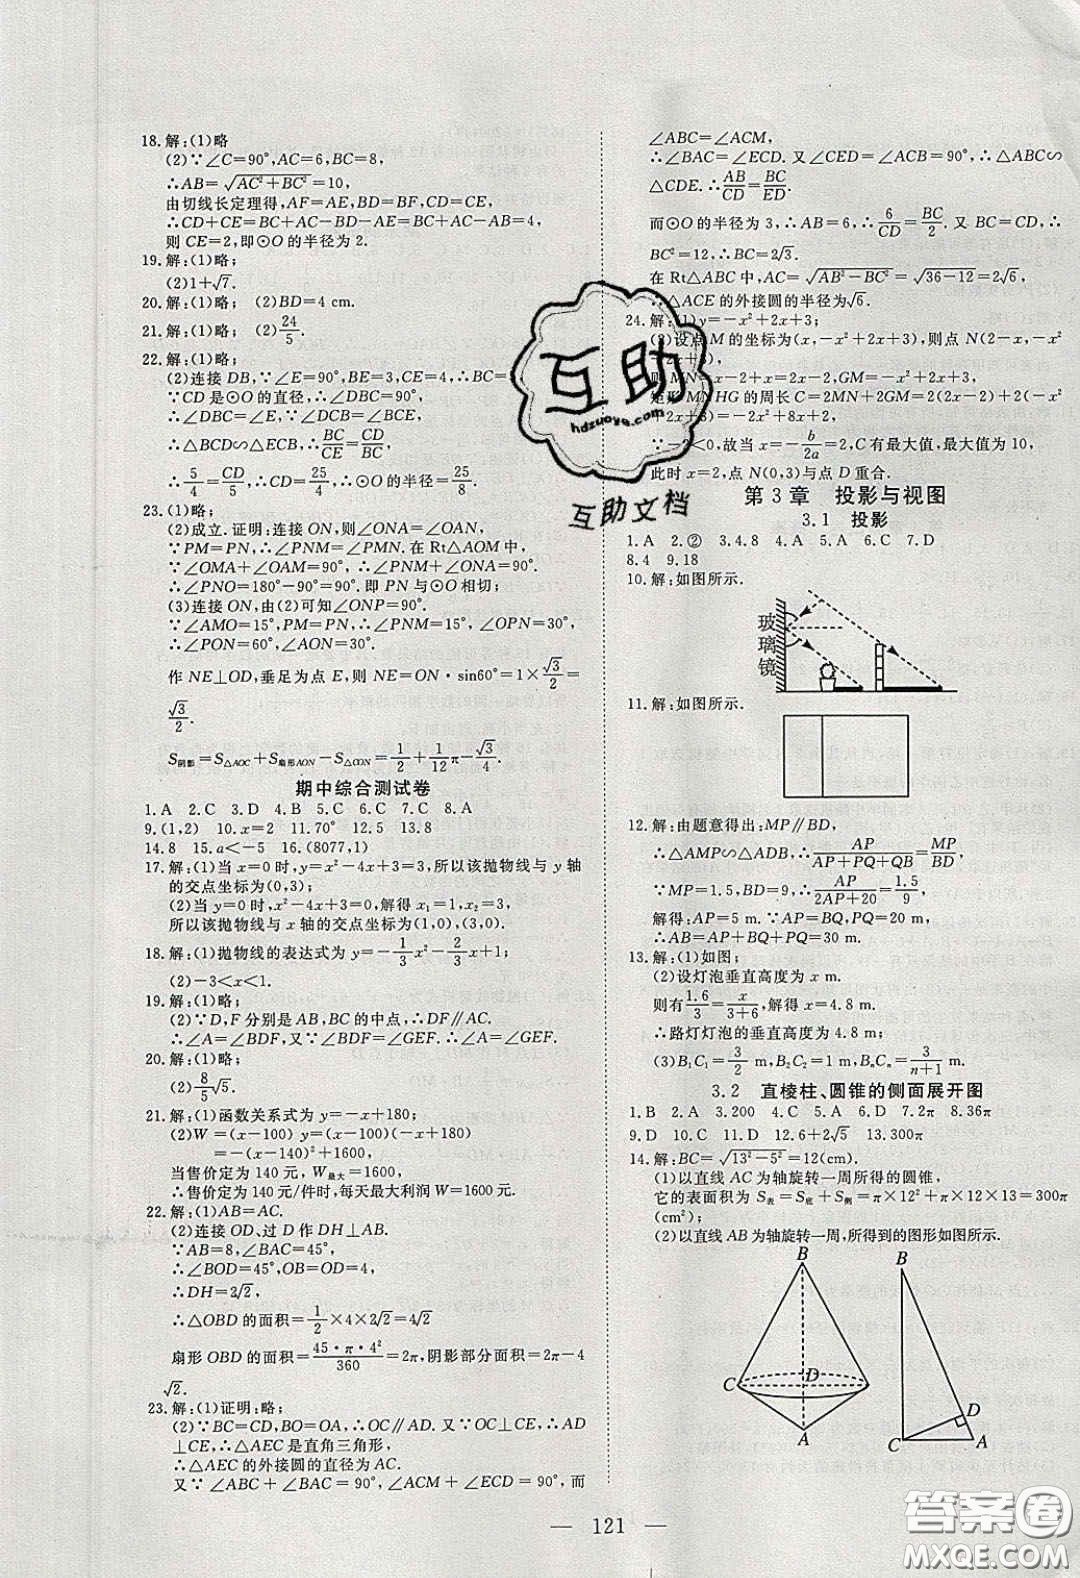 18.解:(1)略
(2)∵∠C=90°,AC=6,BC=8,
∴AB=√(AC²+BC²)=10,
由切线长定理得,AF=AE,BD=BF,CD=CE,
∴CD+CE=BC+AC-BD-AE=BC+AC-AB=4,
则 CE=2,即⊙O的半径为 2.
19.解:(1)略;
(2)1+√7.
20.解:(1)略; (2)BD=4 cm.
21.解:(1)略; (2)24/5.
22.解:(1)略;
(2)连接 DB,∵∠E=90°,BE=3,EC=4,∴BC=
∵CD 是⊙O的直径,∴∠CBD=90°,
∴∠DBC=∠E,∵∠DCB=∠BCE,
∴△BCD∽△ECB,∴BC/CE=CD/BC,
∴5/4=CD/5,∴CD=25/4,∴⊙O的半径=25/8.
23.(1)略;
(2)成立.证明:连接 ON,则∠ONA=∠OAN,
∵PM=PN,∴∠PNM=∠PMN.在 Rt△AOM 中,
∵∠OMA+∠OAM=90°,∴∠PNM+∠ONA=90°.
∴∠PNO=180°-90°=90°.即 PN 与⊙O相切;
(3)连接 ON,由(2)可知∠ONP=90°.
∵∠AMO=15°,PM=PN,∴∠PNM=15°,∠OPN=30°,
∴∠PON=60°,∠AON=30°.
作 NE⊥OD,垂足为点 E,则 NE=ON·sin60°=1×√3/2=
√3/2.
S阴影=S△AOC+S扇形AON-S△CON=1/2+1/12π-√3/4.
期中综合测试卷
1.A 2.C 3.D 4.B 5.C 6.C 7.C 8.A
9.(1,2) 10.x=2 11.70° 12.5 13.8
14.8 15.a<-5 16.(8077,1)
17.解:(1)当 x=0 时,y=x²-4x+3=3,所以该抛物线与 y 轴
的交点坐标为(0,3);
(2)当 y=0时,x²-4x+3=0,解得 x₁=1,x₂=3,
所以该抛物线与 x 轴的交点坐标为(1,0),(3,0).
18.解:(1)抛物线的表达式为 y=-1/3x²-2/3x+1;
(2)-3<x<1.
19.解:(1)略;
(2)∵D,F 分别是 AB,BC 的中点,∴DF∥AC.
∴∠A=∠BDF,又∵∠BDF=∠GEF.∴∠A=∠GEF.
20.解:(1)略;
(2)8/5√5.
21.解:(1)函数关系式为 y=-x+180;
(2)W=(x-100) y=(x-100)(-x+180)
=-(x-140)²+1600,
当售价定为 140 元,W最大=1600,
∴售价定为 140 元/件时,每天最大利润 W=1600 元.
22.解:(1)AB=AC.
(2)连接 OD、过 D 作 DH⊥AB.
∵AB=8,∠BAC=45°,
∴∠BOD=45°,OB=OD=4,
∴DH=2√2,
∴△OBD 的面积=1/2×4×2√2=4√2
扇形 OBD 的面积=45·π·4²/360=2π,阴影部分面积=2π-4
√2.
23.解:(1)证明:略;
(2)∵BC=CD,BO=OA,∴OC∥AD.又∵OC⊥CE,∴AD
⊥CE,∴△AEC是直角三角形,
∴△AEC 的外接圆的直径为 AC.
又∵∠ABC+∠BAC=90°,∠ACM+∠ECD=90°,而
∠ABC=∠ACM,
∴∠BAC=∠ECD. 又∠CED=∠ACB=90°,∴△ABC∽
△CDE.∴AB/CD=BC/ED.
而⊙O的半径为 3,∴AB=6,∴6/CD=BC/2.又 BC=CD,∴
BC²=12,∴BC=2√3.
在 Rt△ABC 中,AC=√(AB²-BC²)=√(36-12)=2√6,
∴△ACE 的外接圆的半径为√6.
24.解:(1)y=-x²+2x+3;
(2)设点 M 的坐标为(x,-x²+2x+3),则点 N(2-x,-x²
+2x+3),
则 MN=x-2+x=2x-2,GM=-x²+2x+3,
矩形 MNHG 的周长 C=2MN+2GM=2(2x-2)+2(-x²
+2x+3)=-2x²+8x+2,
∵-2<0,故当 x=-b/2a=2,C有最大值,最大值为 10,
此时 x=2,点 N(0,3)与点 D 重合.
第 3 章 投影与视图
3.1 投影
1.A 2.② 3.4.8 4.A 5.A 6.C 7.D
8.4 9.18
10.解:如图所示.
玻
璃
镜
11.解:如图所示.
12.解:由题意得出:MP∥BD,
∴△AMP∽△ADB,∴AP/(AP+PQ+QB)=MP/BD,
∵MP=1.5,BD=9,∴AP/(2AP+20)=1.5/9,
解得:AP=5 m.∵AP=BQ,PQ=20 m,
∴AB=AP+BQ+PQ=30 m.
13.解:(1)如图;
(2)设灯泡垂直高度为 x m.
则有1.6/3=x/(3+6),解得 x=4.8 m.
∴路灯灯泡的垂直高度为 4.8 m;
(3)B₁C₁=3/2 m,B₂C₂=1 m,BₙCₙ=3/(n+1) m.
3.2 直棱柱、圆锥的侧面展开图
1.B 2.A 3.200 4.A 5.A 6.D 7.2π 8.36π
9.D 10.C 11.D 12.6+2√5 13.300π
14.解:BC=√(13²-5²)=12(cm).
(1)以直线 AC 为轴旋转一周所得的圆锥,
它的表面积为 S表=S底+S侧=π×12²+π×12×13=300π
(cm²);
(2)以直线 AB 为轴旋转一周,所得到的图形如图所示.
B
B
C
D
A
D
C
A
— 121 —
互助
hdzuoye.com
互助文档
答案圈
MXQE.COM